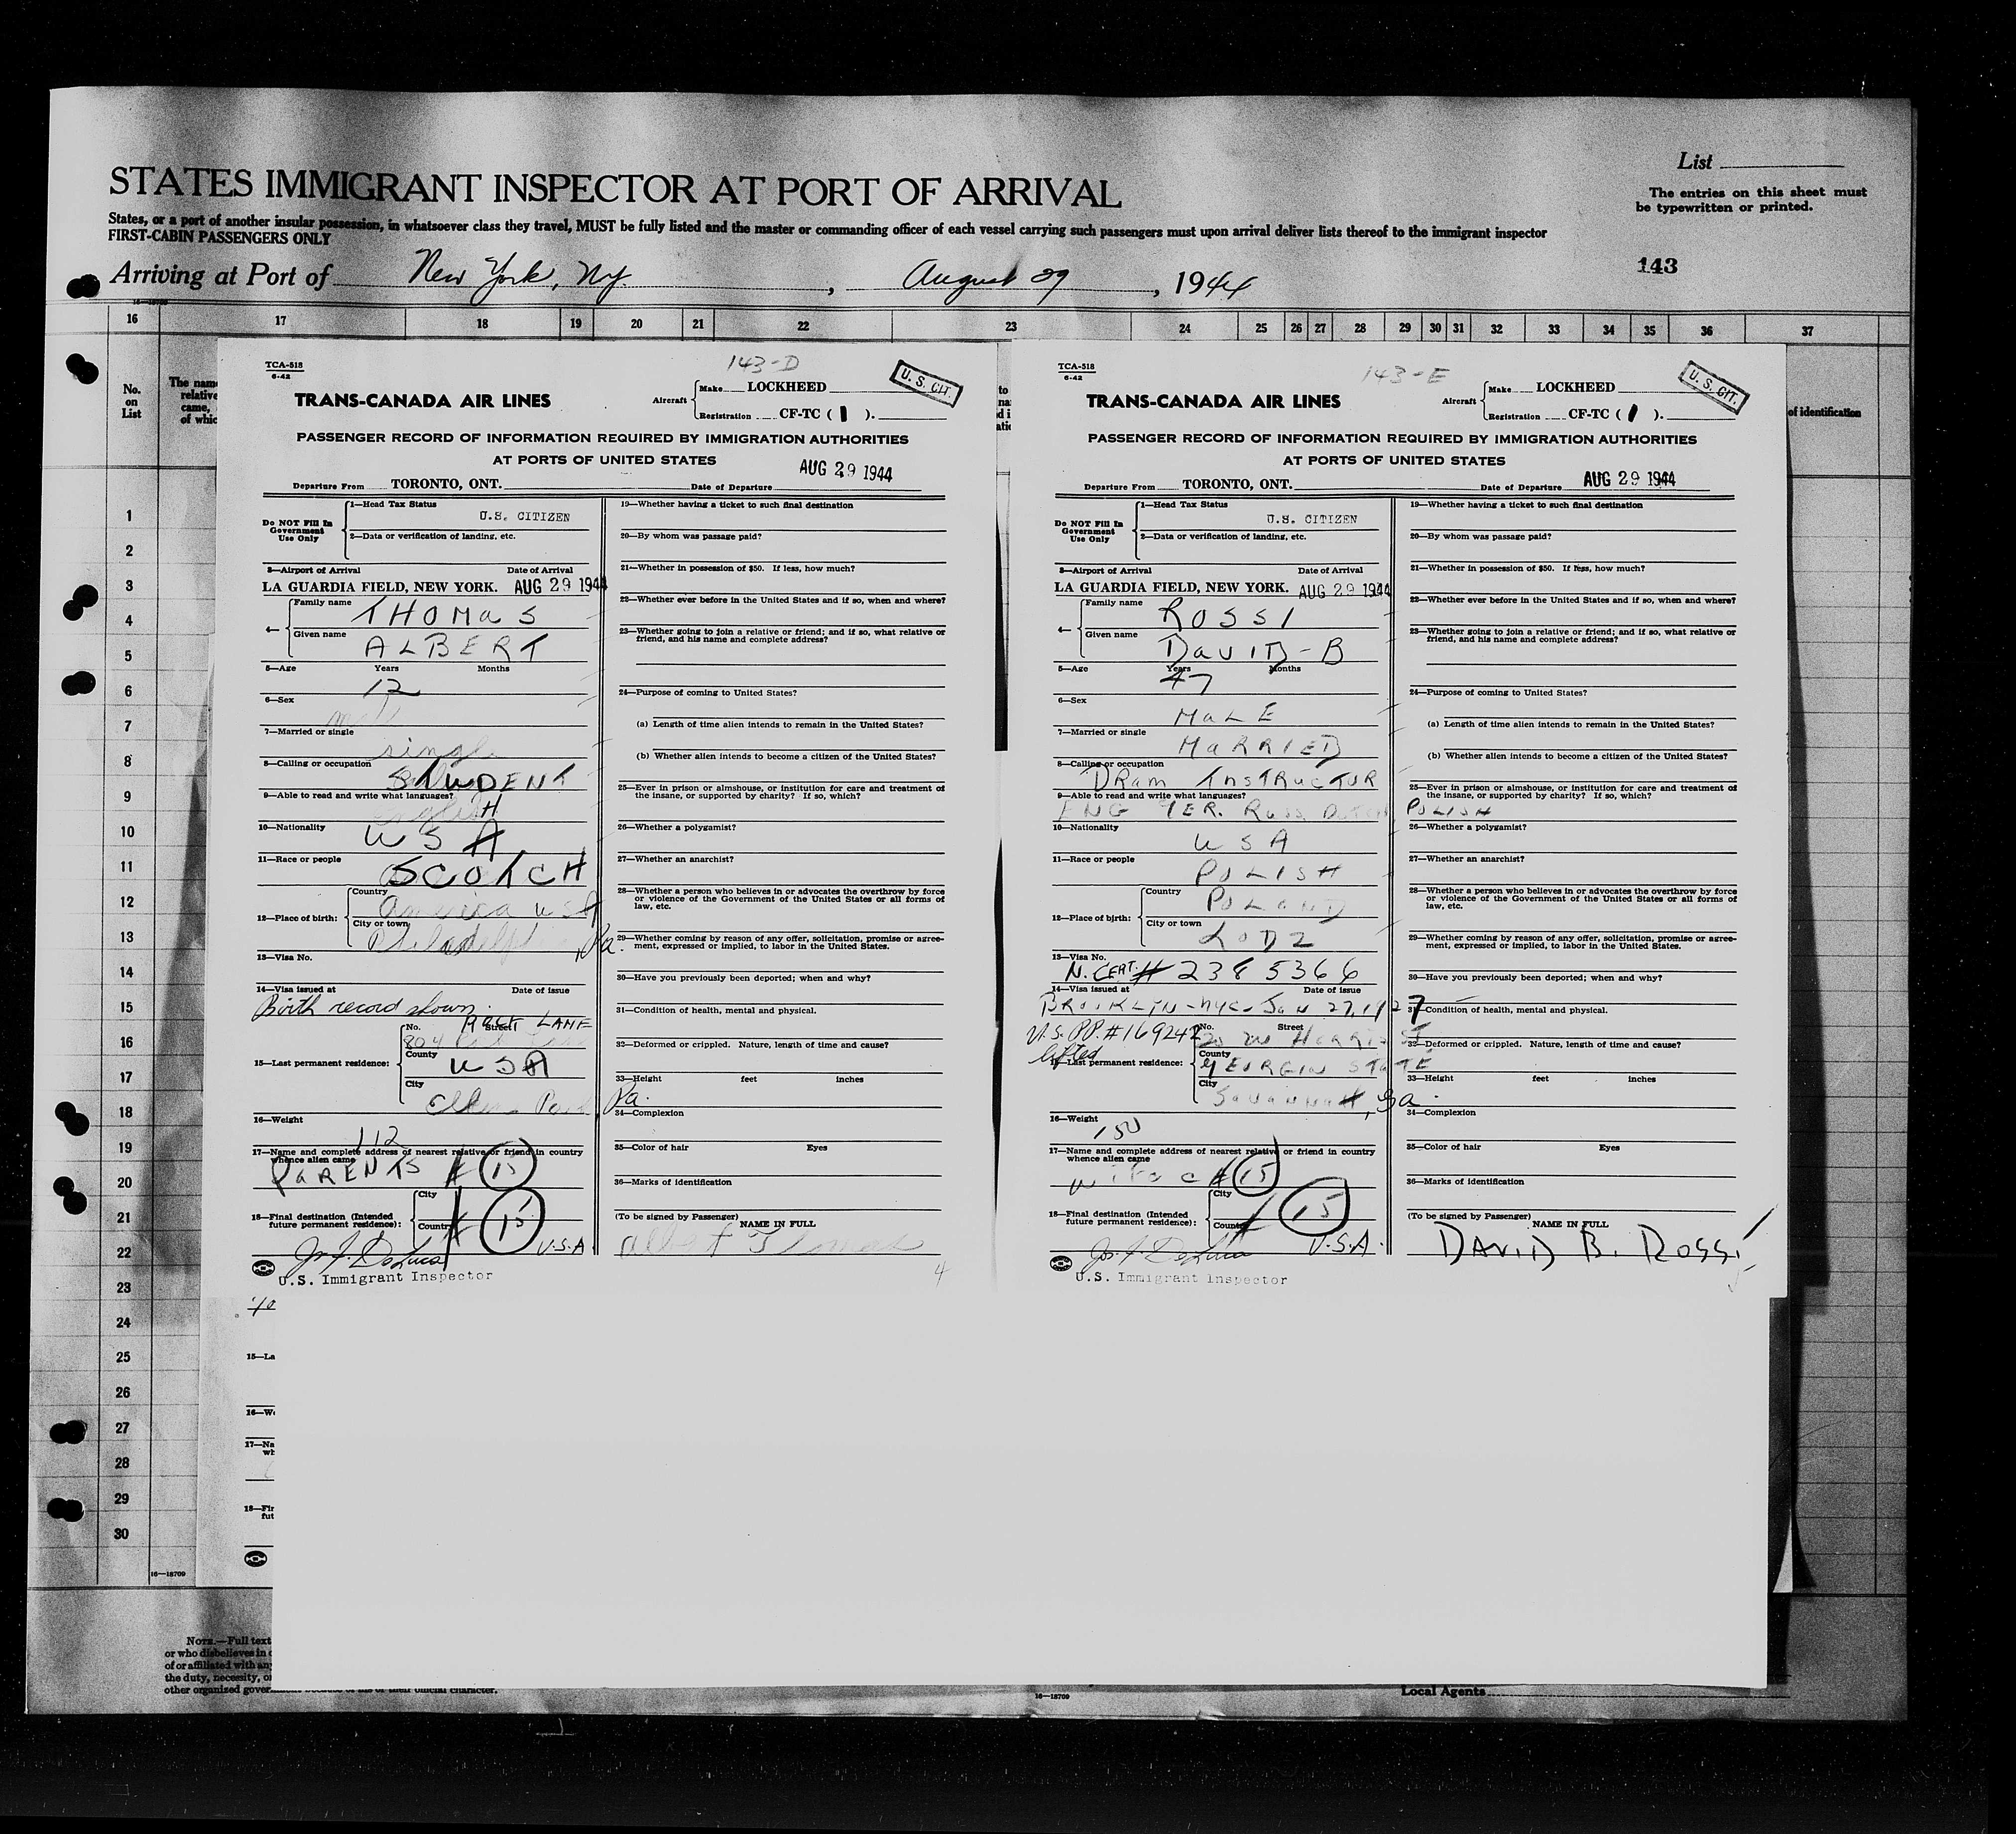 List
STATES IMMIGRANT INSPECTOR AT PORT OF ARRIVAL
The entries on this sheet must
be typewritten or printed.
States, or a port of another insular possession, in whatsoever class they travel, MUST be fully listed and the master or commanding officer of each vessel carrying such passengers must upon arrival deliver lists thereof to the immigrant inspector
FIRST-CABIN PASSENGERS ONLY
Arriving at Port of New York, Ny. , August 29 , 1944
143
16 17 18 19 20 21 22 23 24 25 26 27 28 29 30 31 32 33 34 35 36 37
No.
on
List
The name
relative
came,
of whic
of identification
1
2
3
4
5
6
7
8
9
10
11
12
13
14
15
16
17
18
19
20
21
22
23
24
25
26
27
28
29
30
TCA-518
6-42
143-D
U. S. CIT.
TRANS-CANADA AIR LINES
Aircraft
Make LOCKHEED
Registration CF-TC ( ).
PASSENGER RECORD OF INFORMATION REQUIRED BY IMMIGRATION AUTHORITIES
AT PORTS OF UNITED STATES
AUG 29 1944
Departure From TORONTO, ONT. Date of Departure
Do NOT Fill In
Government
Use Only
1—Head Tax Status
U.S. CITIZEN
2—Data or verification of landing, etc.
3—Airport of Arrival Date of Arrival
LA GUARDIA FIELD, NEW YORK. AUG 29 1944
4—
Family name THOMAS
Given name ALBERT
5—Age Years Months
12
6—Sex
7—Married or single
single
8—Calling or occupation
STUDENT
9—Able to read and write what languages?
10—Nationality
USA
11—Race or people
SCOTCH
12—Place of birth:
Country
America USA
City or town
Philadelphia, Pa.
13—Visa No.
14—Visa issued at Date of issue
Birth record shown.
15—Last permanent residence:
No. Street
804 LANE
County
USA
City
Elkins Park, Pa.
16—Weight
112
17—Name and complete address of nearest relative or friend in country
whence alien came
PARENTS # 15
18—Final destination (Intended
future permanent residence):
City
Country # 15 U.S.A
U.S. Immigrant Inspector
19—Whether having a ticket to such final destination
20—By whom was passage paid?
21—Whether in possession of $50. If less, how much?
22—Whether ever before in the United States and if so, when and where?
23—Whether going to join a relative or friend; and if so, what relative or
friend, and his name and complete address?
24—Purpose of coming to United States?
(a) Length of time alien intends to remain in the United States?
(b) Whether alien intends to become a citizen of the United States?
25—Ever in prison or almshouse, or institution for care and treatment of
the insane, or supported by charity? If so, which?
26—Whether a polygamist?
27—Whether an anarchist?
28—Whether a person who believes in or advocates the overthrow by force
or violence of the Government of the United States or all forms of
law, etc.
29—Whether coming by reason of any offer, solicitation, promise or agree-
ment, expressed or implied, to labor in the United States.
30—Have you previously been deported; when and why?
31—Condition of health, mental and physical.
32—Deformed or crippled. Nature, length of time and cause?
33—Height feet inches
34—Complexion
35—Color of hair Eyes
36—Marks of identification
(To be signed by Passenger)
NAME IN FULL
Albert Thomas
4
TCA-518
6-42
143-E
U. S. CIT.
TRANS-CANADA AIR LINES
Aircraft
Make LOCKHEED
Registration CF-TC ( ).
PASSENGER RECORD OF INFORMATION REQUIRED BY IMMIGRATION AUTHORITIES
AT PORTS OF UNITED STATES
AUG 29 1944
Departure From TORONTO, ONT. Date of Departure
Do NOT Fill In
Government
Use Only
1—Head Tax Status
U.S. CITIZEN
2—Data or verification of landing, etc.
3—Airport of Arrival Date of Arrival
LA GUARDIA FIELD, NEW YORK. AUG 29 1944
4—
Family name ROSSI
Given name DAVID-B
5—Age Years Months
47
6—Sex
MALE
7—Married or single
MARRIED
8—Calling or occupation
DRAM INSTRUCTOR
9—Able to read and write what languages?
ENG RUSS POLISH
10—Nationality
USA
11—Race or people
POLISH
12—Place of birth:
Country
POLAND
City or town
LODZ
13—Visa No.
N. CERT. # 2385366
14—Visa issued at Date of issue
BROOKLYN-NYC- JAN 27, 1927
U.S. PP. # 169242
lifted
15—Last permanent residence:
No. Street
HARRIS ST.
County
GEORGIA STATE
City
SAVANNAH, Ga.
16—Weight
150
17—Name and complete address of nearest relative or friend in country
whence alien came
WIFE # 15
18—Final destination (Intended
future permanent residence):
City
Country # 15 U.S.A.
U.S. Immigrant Inspector
19—Whether having a ticket to such final destination
20—By whom was passage paid?
21—Whether in possession of $50. If less, how much?
22—Whether ever before in the United States and if so, when and where?
23—Whether going to join a relative or friend; and if so, what relative or
friend, and his name and complete address?
24—Purpose of coming to United States?
(a) Length of time alien intends to remain in the United States?
(b) Whether alien intends to become a citizen of the United States?
25—Ever in prison or almshouse, or institution for care and treatment of
the insane, or supported by charity? If so, which?
26—Whether a polygamist?
27—Whether an anarchist?
28—Whether a person who believes in or advocates the overthrow by force
or violence of the Government of the United States or all forms of
law, etc.
29—Whether coming by reason of any offer, solicitation, promise or agree-
ment, expressed or implied, to labor in the United States.
30—Have you previously been deported; when and why?
31—Condition of health, mental and physical.
32—Deformed or crippled. Nature, length of time and cause?
33—Height feet inches
34—Complexion
35—Color of hair Eyes
36—Marks of identification
(To be signed by Passenger)
NAME IN FULL
DAVID B. ROSSI
15—La
16—We
17—Na
wh
18—Fir
fut
16—18709
NOTE.—Full text
or who disbelieves in
of or affiliated with any
the duty, necessity, o
other organized gover
16—18709
Local Agents